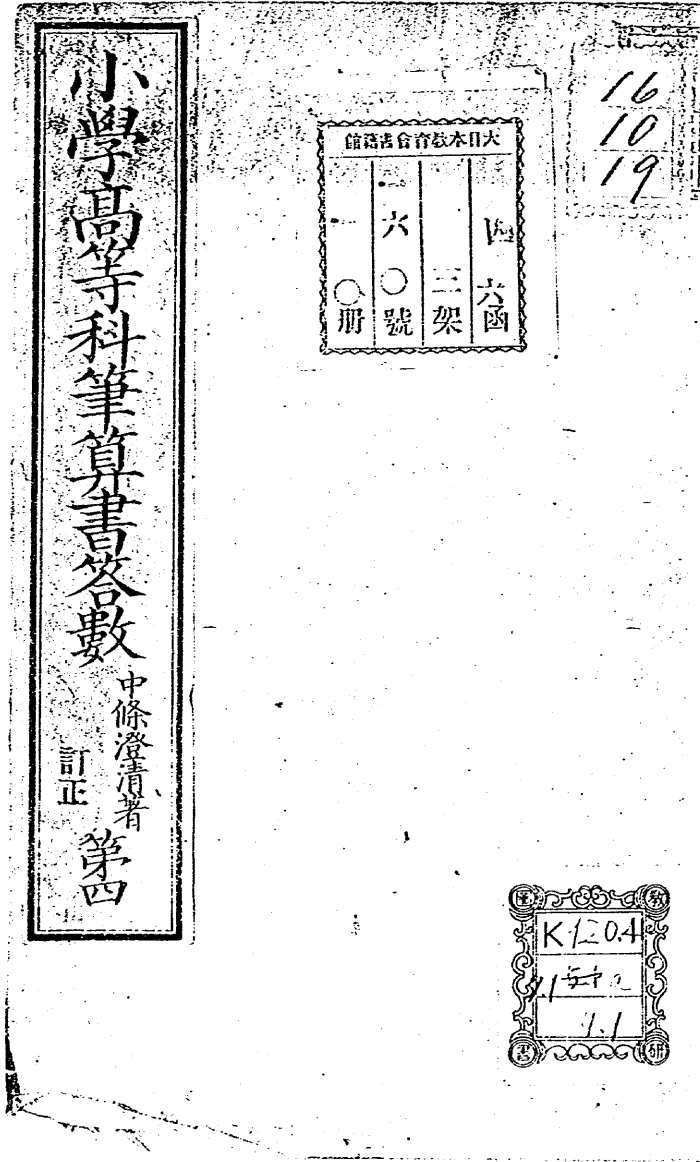 小學高等科筆算書答數
中條澄清著
訂正
第四
大日本教育會書籍館
六函
三架
六〇號
〇册
16
10
19
教
研
書
K120.4
1.1